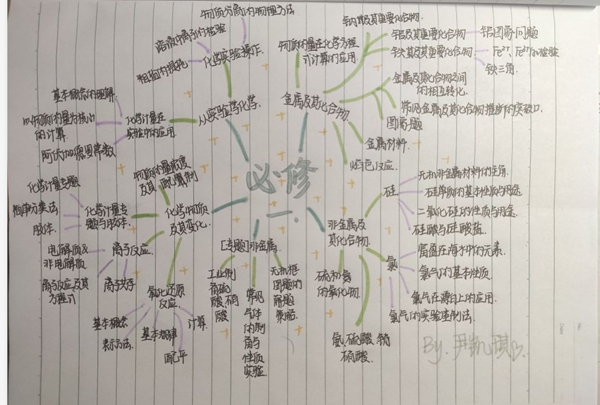 必修
一
从实验学化学
化学实验操作
物质分离的物理方法
溶液中离子的检验
粗盐的提纯
化学计量在
实验中的应用
基本概念的理解
以物质的量为核心
的计算
阿伏加德罗常数
物质的量浓度
及其配制
化学物质
及其变化
化学计量专题
胶体
离子反应
电解质及
非电解质
离子反应及其
方程式
离子共存
氧化还原
反应
基本概念
表示方法
基本规律
配平
计算
[专题]非金属
工业制
硫酸
硝
酸
常见
气体
的制
备与
性质
实验
无机框
图题的
解题
策略
金属及其化合物
物质的量在化学方程
式计算的应用
钠及其重要化合物
铝及其重要化合物
铝图像问题
铁及其重要化合物
Fe²⁺、Fe³⁺的检验
铁三角
金属及其化合物之间
的相互转化
常见金属及其化合物推断的突破口
图像题
金属材料
焰色反应
非金属及
其化合物
硅
无机非金属材料的主角
硅单质的基本性质与用途
二氧化硅的性质与用途
硅酸与硅酸盐
氯
富集在海水中的元素
氯气的基本性质
氯气在漂白上的应用
氯气的实验室制法
硫和氮
的氧化物
氨、硫酸、硝
硫酸
By. 尹凯琪